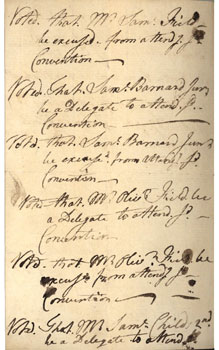 Voted. that Mr Saml. Field
be excused from attendg. sd.
Convention —
Voted. that Saml. Barnard Junr.
be a Delegate to attend sd.
Convention —
Votd. that Saml. Barnard Junr.
be excusd. from attendg. sd.
Convention —
Votd. that Mr Olivr. Field be
a Delegate to attend sd.
Convention
Votd. that Mr Olivr. Field be
excused from attendg. sd.
Convention —
Votd. that Mr Saml. Child 2nd
be a Delegate to attend sd.